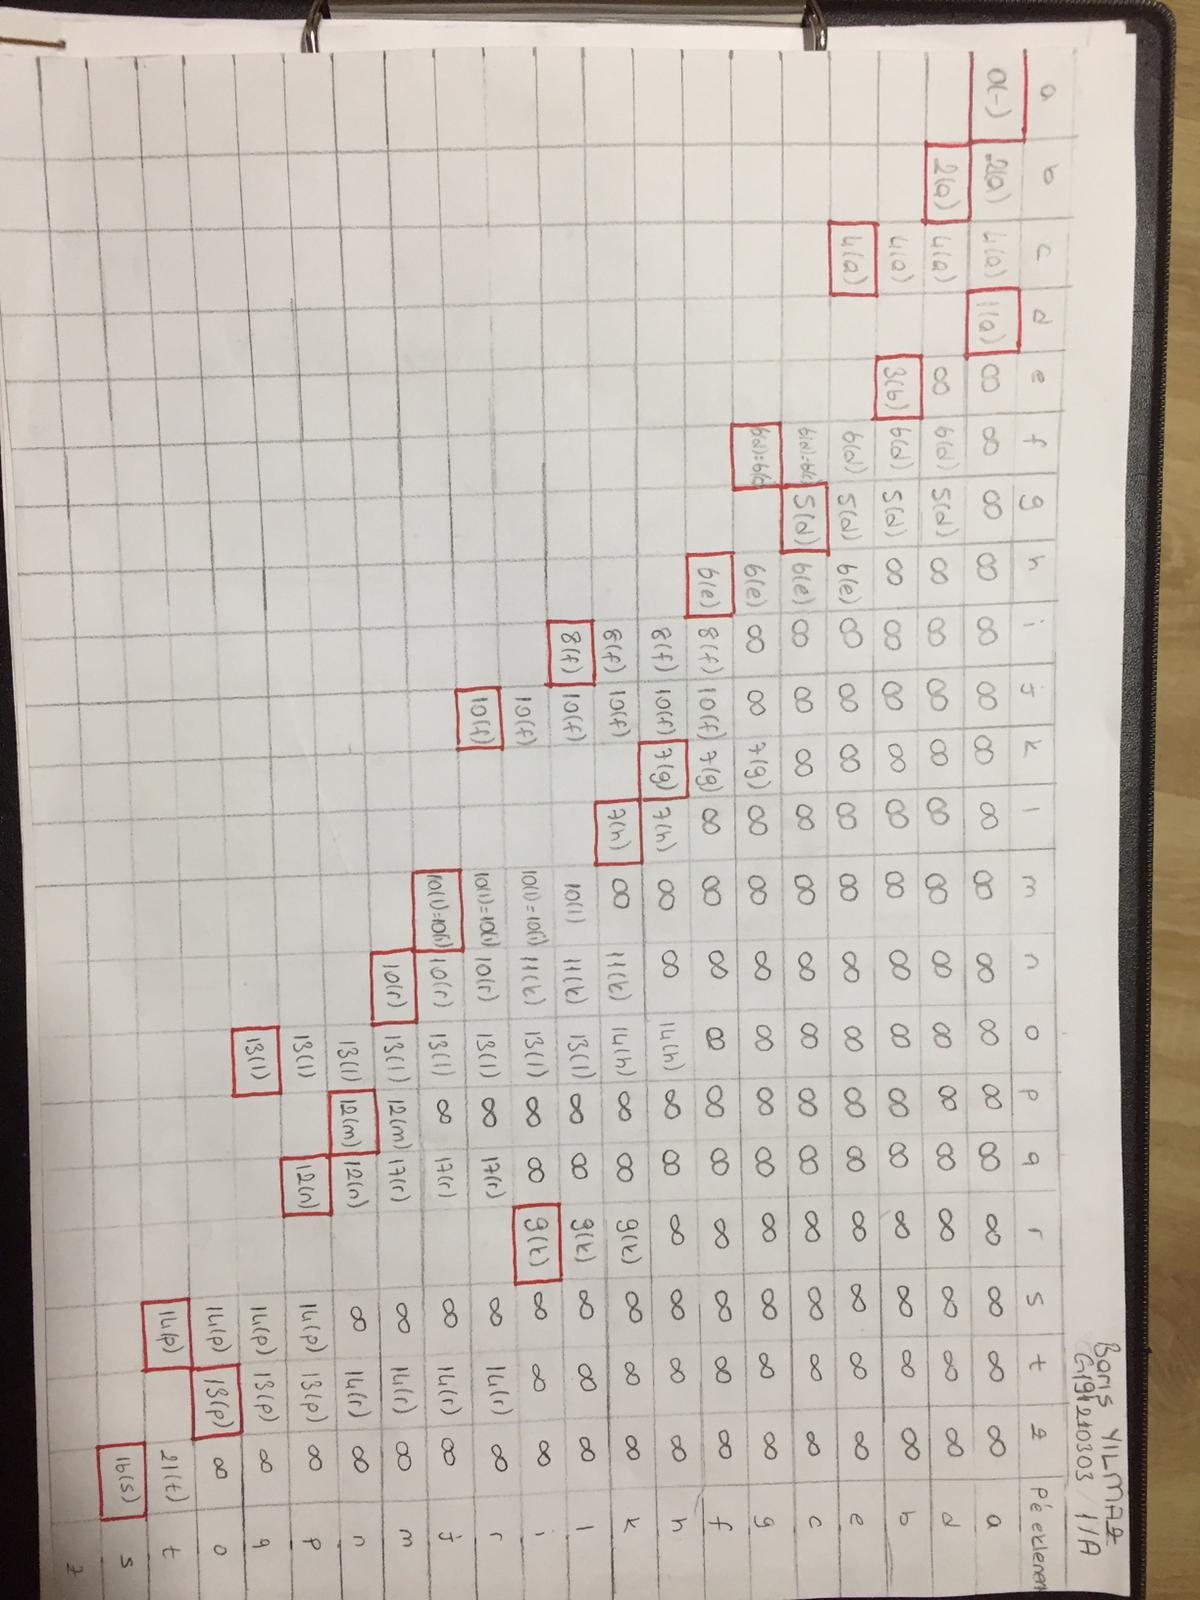 Barış YILMAZ
G191210303 1/A
a b c d e f g h i j k l m n o p q r s t z P'e eklenen
0(-) 2(a) 4(a) 1(a) ∞ ∞ ∞ ∞ ∞ ∞ ∞ ∞ ∞ ∞ ∞ ∞ ∞ ∞ ∞ ∞ ∞ a
2(a) 4(a) ∞ 6(d) 5(d) ∞ ∞ ∞ ∞ ∞ ∞ ∞ ∞ ∞ ∞ ∞ ∞ ∞ ∞ d
4(a) 3(b) 6(d) 5(d) ∞ ∞ ∞ ∞ ∞ ∞ ∞ ∞ ∞ ∞ ∞ ∞ ∞ ∞ b
4(a) 6(d) 5(d) 6(e) ∞ ∞ ∞ ∞ ∞ ∞ ∞ ∞ ∞ ∞ ∞ ∞ ∞ e
6(d)=6(c) 5(d) 6(e) ∞ ∞ ∞ ∞ ∞ ∞ ∞ ∞ ∞ ∞ ∞ ∞ ∞ c
6(d)=6(c) 6(e) ∞ ∞ 7(g) ∞ ∞ ∞ ∞ ∞ ∞ ∞ ∞ ∞ ∞ g
6(e) 8(f) 10(f) 7(g) ∞ ∞ ∞ ∞ ∞ ∞ ∞ ∞ ∞ ∞ f
8(f) 10(f) 7(g) 7(h) ∞ ∞ 14(h) ∞ ∞ ∞ ∞ ∞ ∞ h
8(f) 10(f) 7(h) ∞ 11(k) 14(h) ∞ ∞ 9(k) ∞ ∞ ∞ k
8(f) 10(f) 10(l) 11(k) 13(l) ∞ ∞ 9(k) ∞ ∞ ∞ l
10(f) 10(l)=10(i) 11(k) 13(l) ∞ ∞ 9(k) ∞ ∞ ∞ i
10(f) 10(l)=10(i) 10(r) 13(l) ∞ 17(r) ∞ 14(r) ∞ r
10(l)=10(i) 10(r) 13(l) ∞ 17(r) ∞ 14(r) ∞ j
10(r) 13(l) 12(m) 17(r) ∞ 14(r) ∞ m
13(l) 12(m) 12(n) ∞ 14(r) ∞ n
13(l) 12(n) 14(p) 13(p) ∞ p
13(l) 14(p) 13(p) ∞ q
14(p) 13(p) ∞ o
14(p) 21(t) t
16(s) s
z